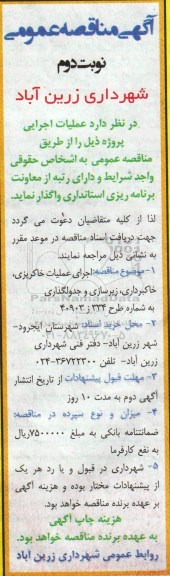 آگهی مناقصه عمومی
نوبت دوم
شهرداری زرین آباد
در نظر دارد عملیات اجرایی
پروژه ذیل را از طریق
مناقصه عمومی به اشخاص حقوقی
واجد شرایط و دارای رتبه از معاونت
برنامه ریزی استانداری واگذار نماید.
لذا از کلیه متقاضیان دعوت می گردد
جهت دریافت اسناد مناقصه در موعد مقرر
به نشانی ذیل مراجعه نمایند.
۱- موضوع مناقصه: اجرای عملیات خاکریزی،
خاکبرداری، زیرسازی و جدولگذاری
به شماره طرح ۳۳۴ ز ۴۰۹۰۳
۲- محل خرید اسناد: شهرستان ایجرود-
شهر زرین آباد- دفتر فنی شهرداری
زرین آباد- تلفن ۳۶۷۲۲۳۰۰-۰۲۴
۳- مهلت قبول پیشنهادات از تاریخ انتشار
آگهی دوم به مدت ۱۰ روز
۴- میزان و نوع سپرده در مناقصه:
ضمانتنامه بانکی به مبلغ ۷۵۰۰۰۰۰۰ریال
به نفع کارفرما
۵- شهرداری در قبول و یا رد هر یک
از پیشنهادات مختار بوده و هزینه آگهی
بر عهده برنده مناقصه خواهد بود.
هزینه چاپ آگهی
به عهده برنده مناقصه خواهد بود.
روابط عمومی شهرداری زرین آباد